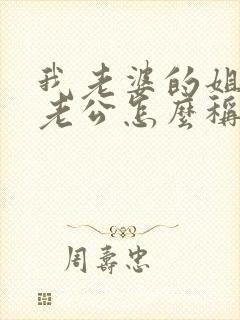 我老婆的姐
老公怎麼稱
周壽忠